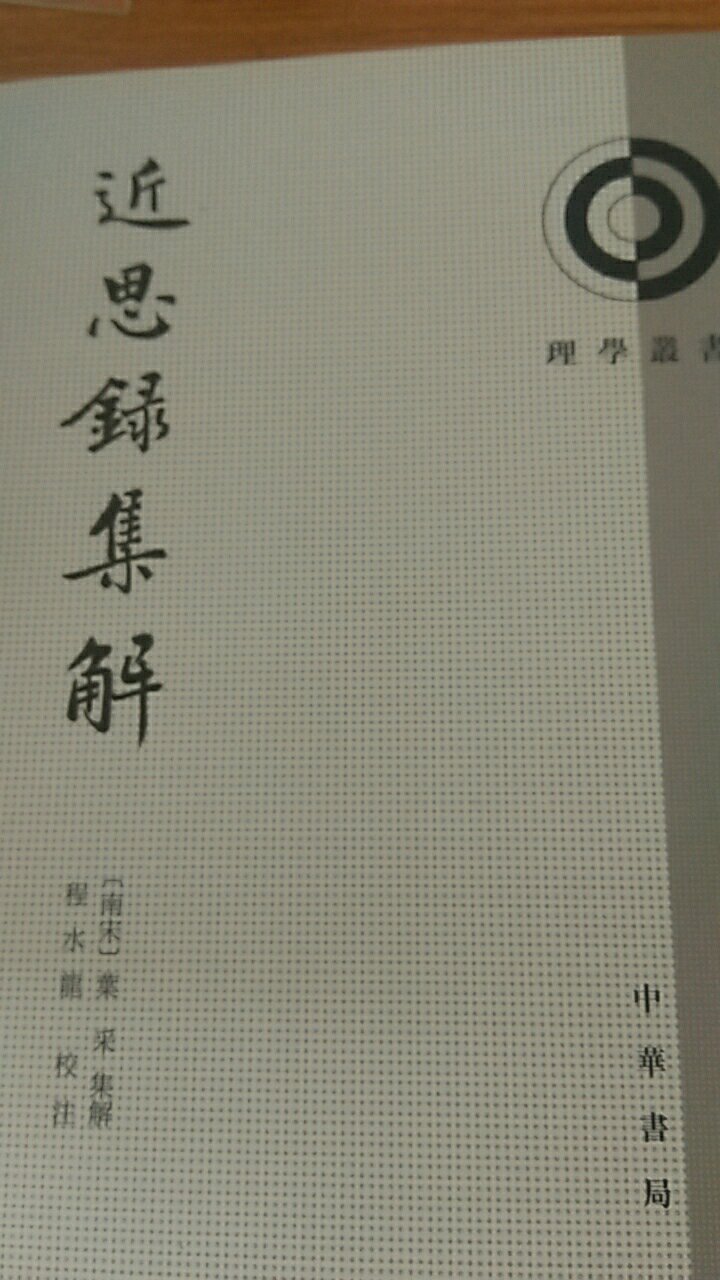 理學叢書
近思録集解
〔南宋〕葉采 集解
程水龍 校注
中華書局